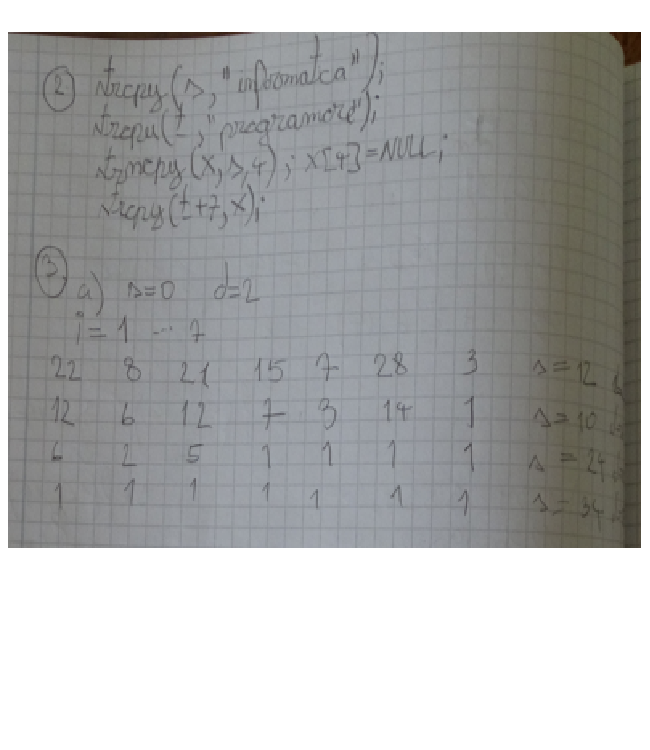 ② strcpy(s,"informatca");
strcpy(t,"programore");
strncpy(x,s,4); x[4]=NULL;
strcpy(t+7,x);
③ a) s=0 d=2
i=1 ... 7
22 8 21 15 7 28 3 s=12
12 6 12 7 3 14 1 s=10
6 2 5 1 1 1 1 s=24
1 1 1 1 1 1 1 s=34